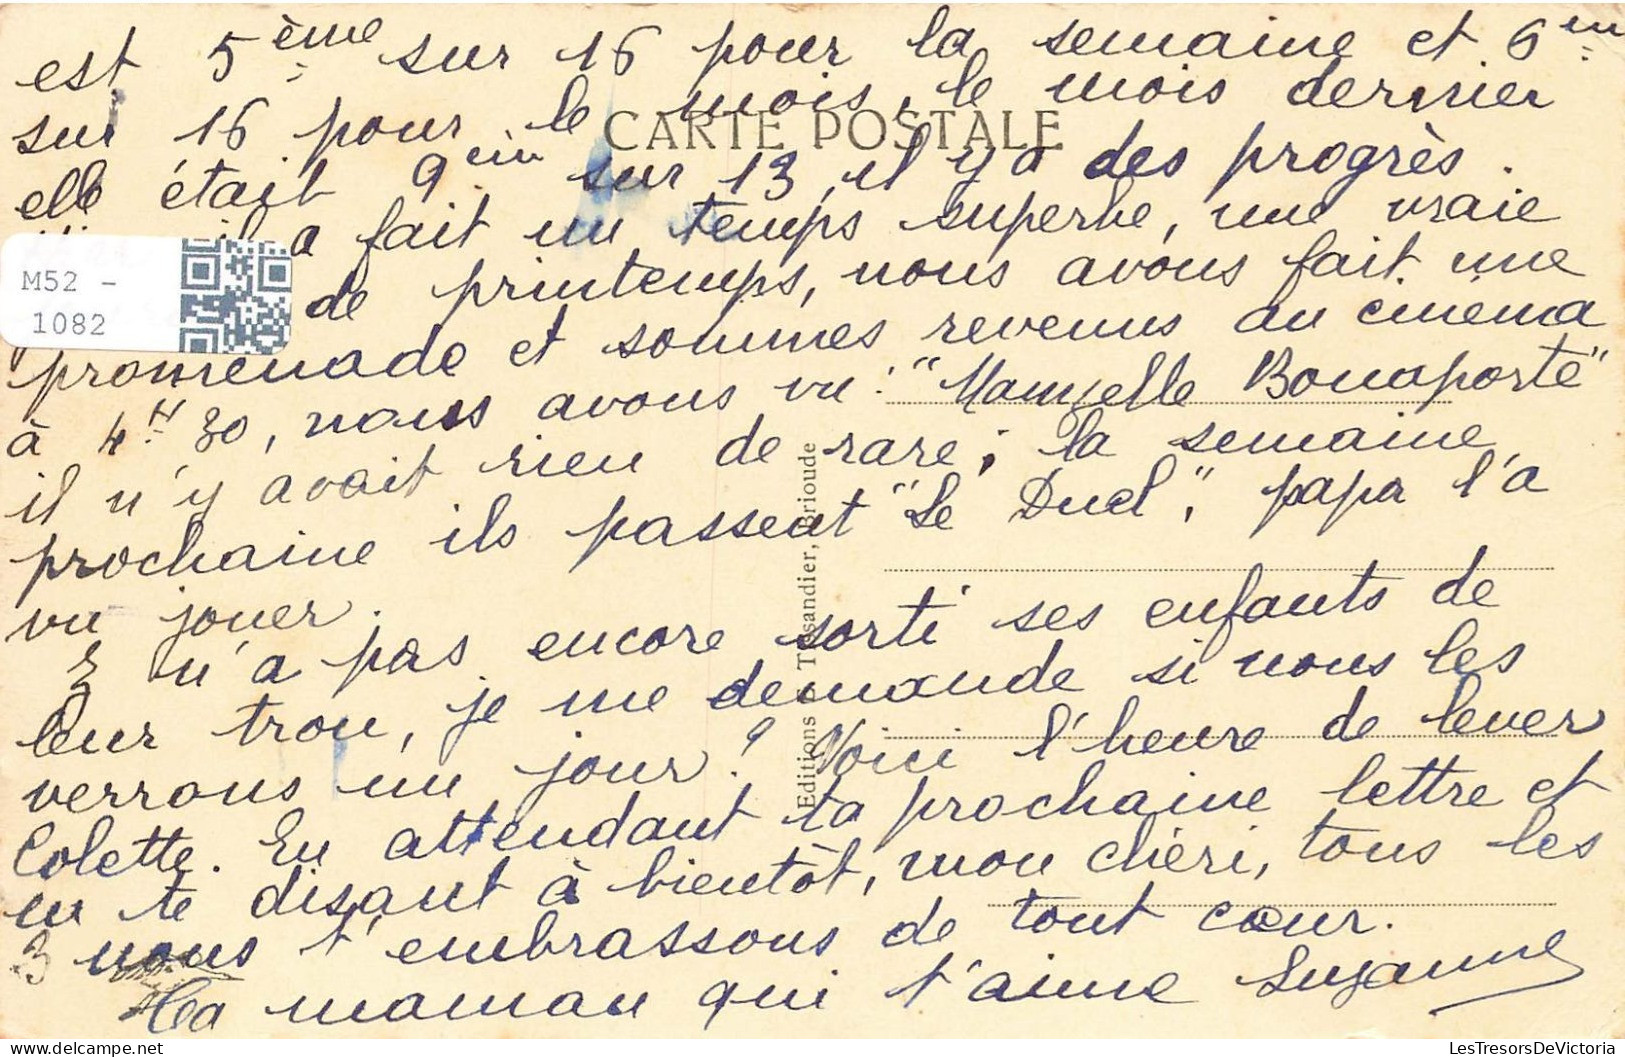 est 5ème sur 16 pour la semaine et 6em
sur 16 pour le mois, le mois dernier
CARTE POSTALE
elle était 9em sur 13, il y a des progrès.
il a fait un temps superbe, une vraie
M52 -
1082
de printemps, nous avons fait une
promenade et sommes revenus au cinéma
à 4H30, nous avons vu : "Mamzelle Bonaparte"
il n'y avait rien de rare ; la semaine
prochaine ils passent "Le Duel", papa l'a
vu jouer.
n'a pas encore sorti ses enfants de
leur trou, je me demande si nous les
verrons un jour ? Voici l'heure de lever
Colette. En attendant ta prochaine lettre et
en te disant à bientôt, mon chéri, tous les
3 nous t'embrassons de tout cœur.
Ta maman qui t'aime Suzanne
Editions Trésandier, Brioude
LesTresorsDeVictoria